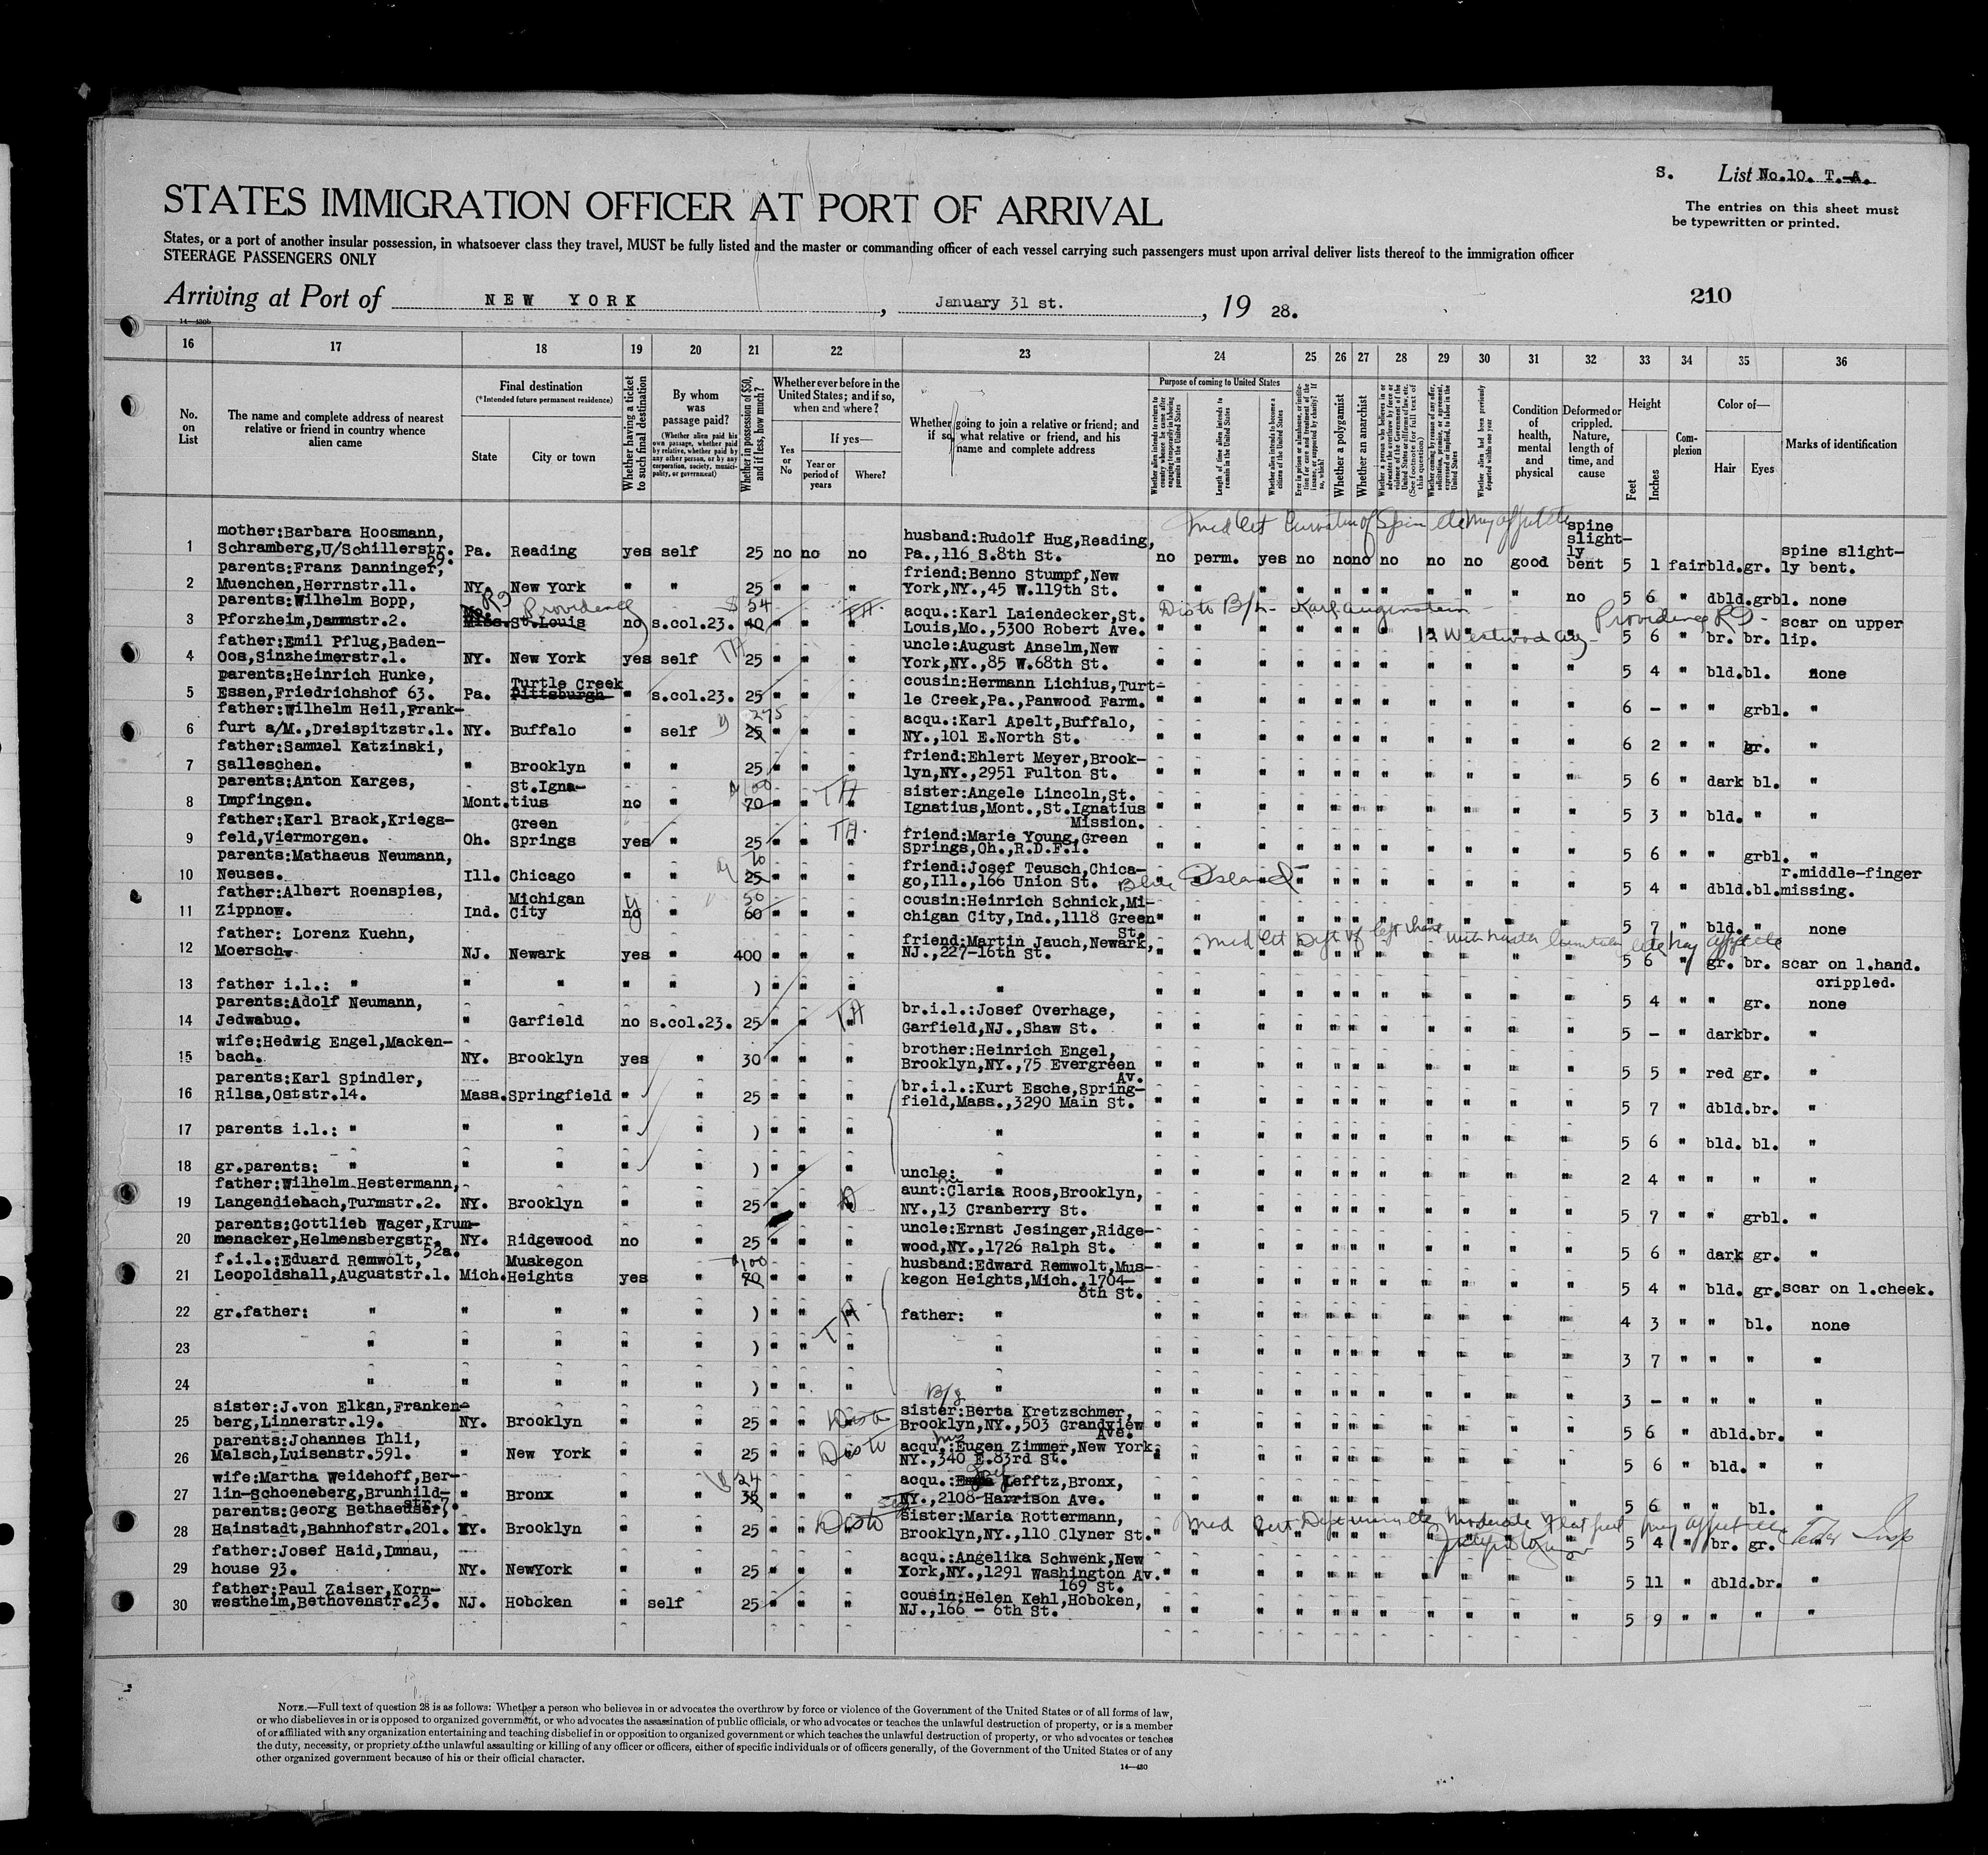 S. List No.10. T.-A.
The entries on this sheet must
be typewritten or printed.
STATES IMMIGRATION OFFICER AT PORT OF ARRIVAL
States, or a port of another insular possession, in whatsoever class they travel, MUST be fully listed and the master or commanding officer of each vessel carrying such passengers must upon arrival deliver lists thereof to the immigration officer
STEERAGE PASSENGERS ONLY
Arriving at Port of NEW YORK, January 31 st., 19 28.
210
14—430b
16 17 18 19 20 21 22 23 24 25 26 27 28 29 30 31 32 33 34 35 36
No. on List
The name and complete address of nearest relative or friend in country whence alien came
Final destination
(*Intended future permanent residence)
State
City or town
Whether having a ticket to such final destination
By whom was passage paid?
(Whether alien paid his own passage, whether paid by relative, whether paid by any other person, or by any corporation, society, municipality, or government)
Whether in possession of $50, and if less, how much?
Whether ever before in the United States; and if so, when and where?
Yes or No
If yes—
Year or period of years
Where?
Whether going to join a relative or friend; and if so, what relative or friend, and his name and complete address
Purpose of coming to United States
Whether alien intends to return to country whence he came after engaging temporarily in laboring pursuits in the United States
Length of time alien intends to remain in the United States
Whether alien intends to become a citizen of the United States
Ever in prison or almshouse, or institution for care and treatment of the insane, or supported by charity? If so, which?
Whether a polygamist
Whether an anarchist
Whether a person who believes in or advocates the overthrow by force or violence of the Government of the United States or all forms of law, etc. (See footnote for full text of this question)
Whether coming by reason of any offer, solicitation, promise, or agreement, expressed or implied, to labor in the United States
Whether alien had been previously deported within one year
Condition of health, mental and physical
Deformed or crippled. Nature, length of time, and cause
Height
Feet
Inches
Complexion
Color of—
Hair
Eyes
Marks of identification
1 mother:Barbara Hoosmann, Schramberg,U/Schillerstr. 59. Pa. Reading yes self 25 no no no husband:Rudolf Hug,Reading, Pa.,116 S.8th St. no perm. yes no no no no no no good spine slight-ly bent 5 1 fair bld. gr. spine slight-ly bent.
2 parents:Franz Danninger, Muenchen,Herrnstr.11. NY. New York " " 25 " " " friend:Benno Stumpf,New York,NY.,45 W.119th St. " " " " " " " " " " no 5 6 " dbld.grbl. none
3 parents:Wilhelm Bopp, Pforzheim,Dammstr.2. Mo. Miss. St.Louis RI Providence no s.col.23. 40 $ 34 " " " acqu.:Karl Laiendecker,St. Louis,Mo.,5300 Robert Ave. Karl Augenstein 12 Westwood Ave Providence RI " " " 5 6 " br. br. scar on upper lip.
4 father:Emil Pflug,Baden-Oos,Sinzheimerstr.1. NY. New York yes self 25 " " " uncle:August Anselm,New York,NY.,85 W.68th St. " " " 5 4 " bld.bl. none
5 parents:Heinrich Hunke, Essen,Friedrichshof 63. Pa. Turtle Creek Pittsburgh " s.col.23. 25 " " " cousin:Hermann Lichius,Turt-le Creek,Pa.,Panwood Farm. " " " 6 – " " grbl. "
6 father:Wilhelm Heil,Frank-furt a/M.,Dreispitzstr.1. NY. Buffalo " self 25 275 " " " acqu.:Karl Apelt,Buffalo, NY.,101 E.North St. " " " 6 2 " " gr. "
7 father:Samuel Katzinski, Salleschen. " Brooklyn " " 25 " " " friend:Ehlert Meyer,Brook-lyn,NY.,2951 Fulton St. " " " 5 6 " dark bl. "
8 parents:Anton Karges, Impfingen. Mont. St.Igna-tius no " 70 100 " " TA " sister:Angele Lincoln,St. Ignatius,Mont.,St.Ignatius Mission. " " " 5 3 " bld. " "
9 father:Karl Brack,Kriegs-feld,Viermorgen. Oh. Green Springs yes " 25 " " TA " friend:Marie Young,Green Springs,Oh.,R.D.F.1. " " " 5 6 " " grbl. "
10 parents:Mathaeus Neumann, Neuses. Ill. Chicago " " 25 70 " " " friend:Josef Teusch,Chica-go,Ill.,166 Union St. Blue Island " " " 5 4 " dbld.bl. r.middle-finger missing.
11 father:Albert Roenspies, Zippnow. Ind. Michigan City no " 60 50 " " " cousin:Heinrich Schnick,Mi-chigan City,Ind.,1118 Green St. " " " 5 7 " bld. " none
12 father: Lorenz Kuehn, Moersch. NJ. Newark yes " 400 " " " friend:Martin Jauch,Newark, NJ.,227-16th St. " " " 5 6 " gr. br. scar on l.hand. crippled.
13 father i.l.: " " " " " ) " " " " " " " 5 4 " " gr. none
14 parents:Adolf Neumann, Jedwabuo. " Garfield no s.col.23. 25 " " TA " br.i.l.:Josef Overhage, Garfield,NJ.,Shaw St. " " " 5 – " dark br. "
15 wife:Hedwig Engel,Macken-bach. NY. Brooklyn yes " 30 " " " brother:Heinrich Engel, Brooklyn,NY.,75 Evergreen Av. " " " 5 5 " red gr. "
16 parents:Karl Spindler, Rilsa,Oststr.14. Mass. Springfield " " 25 " " " br.i.l.:Kurt Esche,Spring-field,Mass.,3290 Main St. " " " 5 7 " dbld.br. "
17 parents i.l.: " " " " " ) " " " " " " " 5 6 " bld. bl. "
18 gr.parents: " " " " " ) " " " uncle: " " " " 2 4 " " " "
19 father:Wilhelm Hestermann, Langendiebach,Turmstr.2. NY. Brooklyn " " 25 " " " aunt:Claria Roos,Brooklyn, NY.,13 Cranberry St. " " " 5 7 " " grbl. "
20 parents:Gottlieb Wager,Krum-menacker,Helmensbergstr. 52a. NY. Ridgewood no " 25 " " " uncle:Ernst Jesinger,Ridge-wood,NY.,1726 Ralph St. " " " 5 6 " dark gr. "
21 f.i.l.:Eduard Remwolt, Leopoldshall,Auguststr.1. Mich. Muskegon Heights yes " 70 100 " " " husband:Edward Remwolt,Mus-kegon Heights,Mich.,1704-8th St. " " " 5 4 " bld. gr. scar on l.cheek.
22 gr.father: " " " " " ) " " TA " father: " " " " 4 3 " " bl. none
23 " " " " " ) " " " " " " " 3 7 " " " "
24 " " " " " ) " " " " " " " 3 – " " " "
25 sister:J.von Elkan,Franken-berg,Linnerstr.19. NY. Brooklyn " " 25 " " " sister:Berta Kretzschmer, Brooklyn,NY.,503 Grandview Ave. " " " 5 6 " dbld.br. "
26 parents:Johannes Ihli, Malsch,Luisenstr.591. " New York " " 25 " " " acqu.:Eugen Zimmer,New York, NY.,340 E.83rd St. " " " 5 6 " bld. " "
27 wife:Martha Weidehoff,Ber-lin-Schoeneberg,Brunhild-str.7. " Bronx " " 35 24 " " " acqu.: Lefftz,Bronx, NY.,2108 Harrison Ave. " " " 5 6 " " bl. "
28 parents:Georg Bethaeuser, Hainstadt,Bahnhofstr.201. NY. Brooklyn " " 25 " " " sister:Maria Rottermann, Brooklyn,NY.,110 Clyner St. " " " 5 4 " br. gr. "
29 father:Josef Haid,Imnau, house 93. NY. NewYork " " 25 " " " acqu.:Angelika Schwenk,New York,NY.,1291 Washington Av. 169 St. " " " 5 11 " dbld.br. "
30 father:Paul Zaiser,Korn-westheim,Bethovenstr.23. NJ. Hoboken " self 25 " " " cousin:Helen Kehl,Hoboken, NJ.,166 - 6th St. " " " 5 9 " " " "
NOTE.—Full text of question 28 is as follows: Whether a person who believes in or advocates the overthrow by force or violence of the Government of the United States or of all forms of law,
or who disbelieves in or is opposed to organized government, or who advocates the assassination of public officials, or who advocates or teaches the unlawful destruction of property, or is a member
of or affiliated with any organization entertaining and teaching disbelief in or opposition to organized government or which teaches the unlawful destruction of property, or who advocates or teaches
the duty, necessity, or propriety of the unlawful assaulting or killing of any officer or officers, either of specific individuals or of officers generally, of the Government of the United States or of any
other organized government because of his or their official character.
14—430